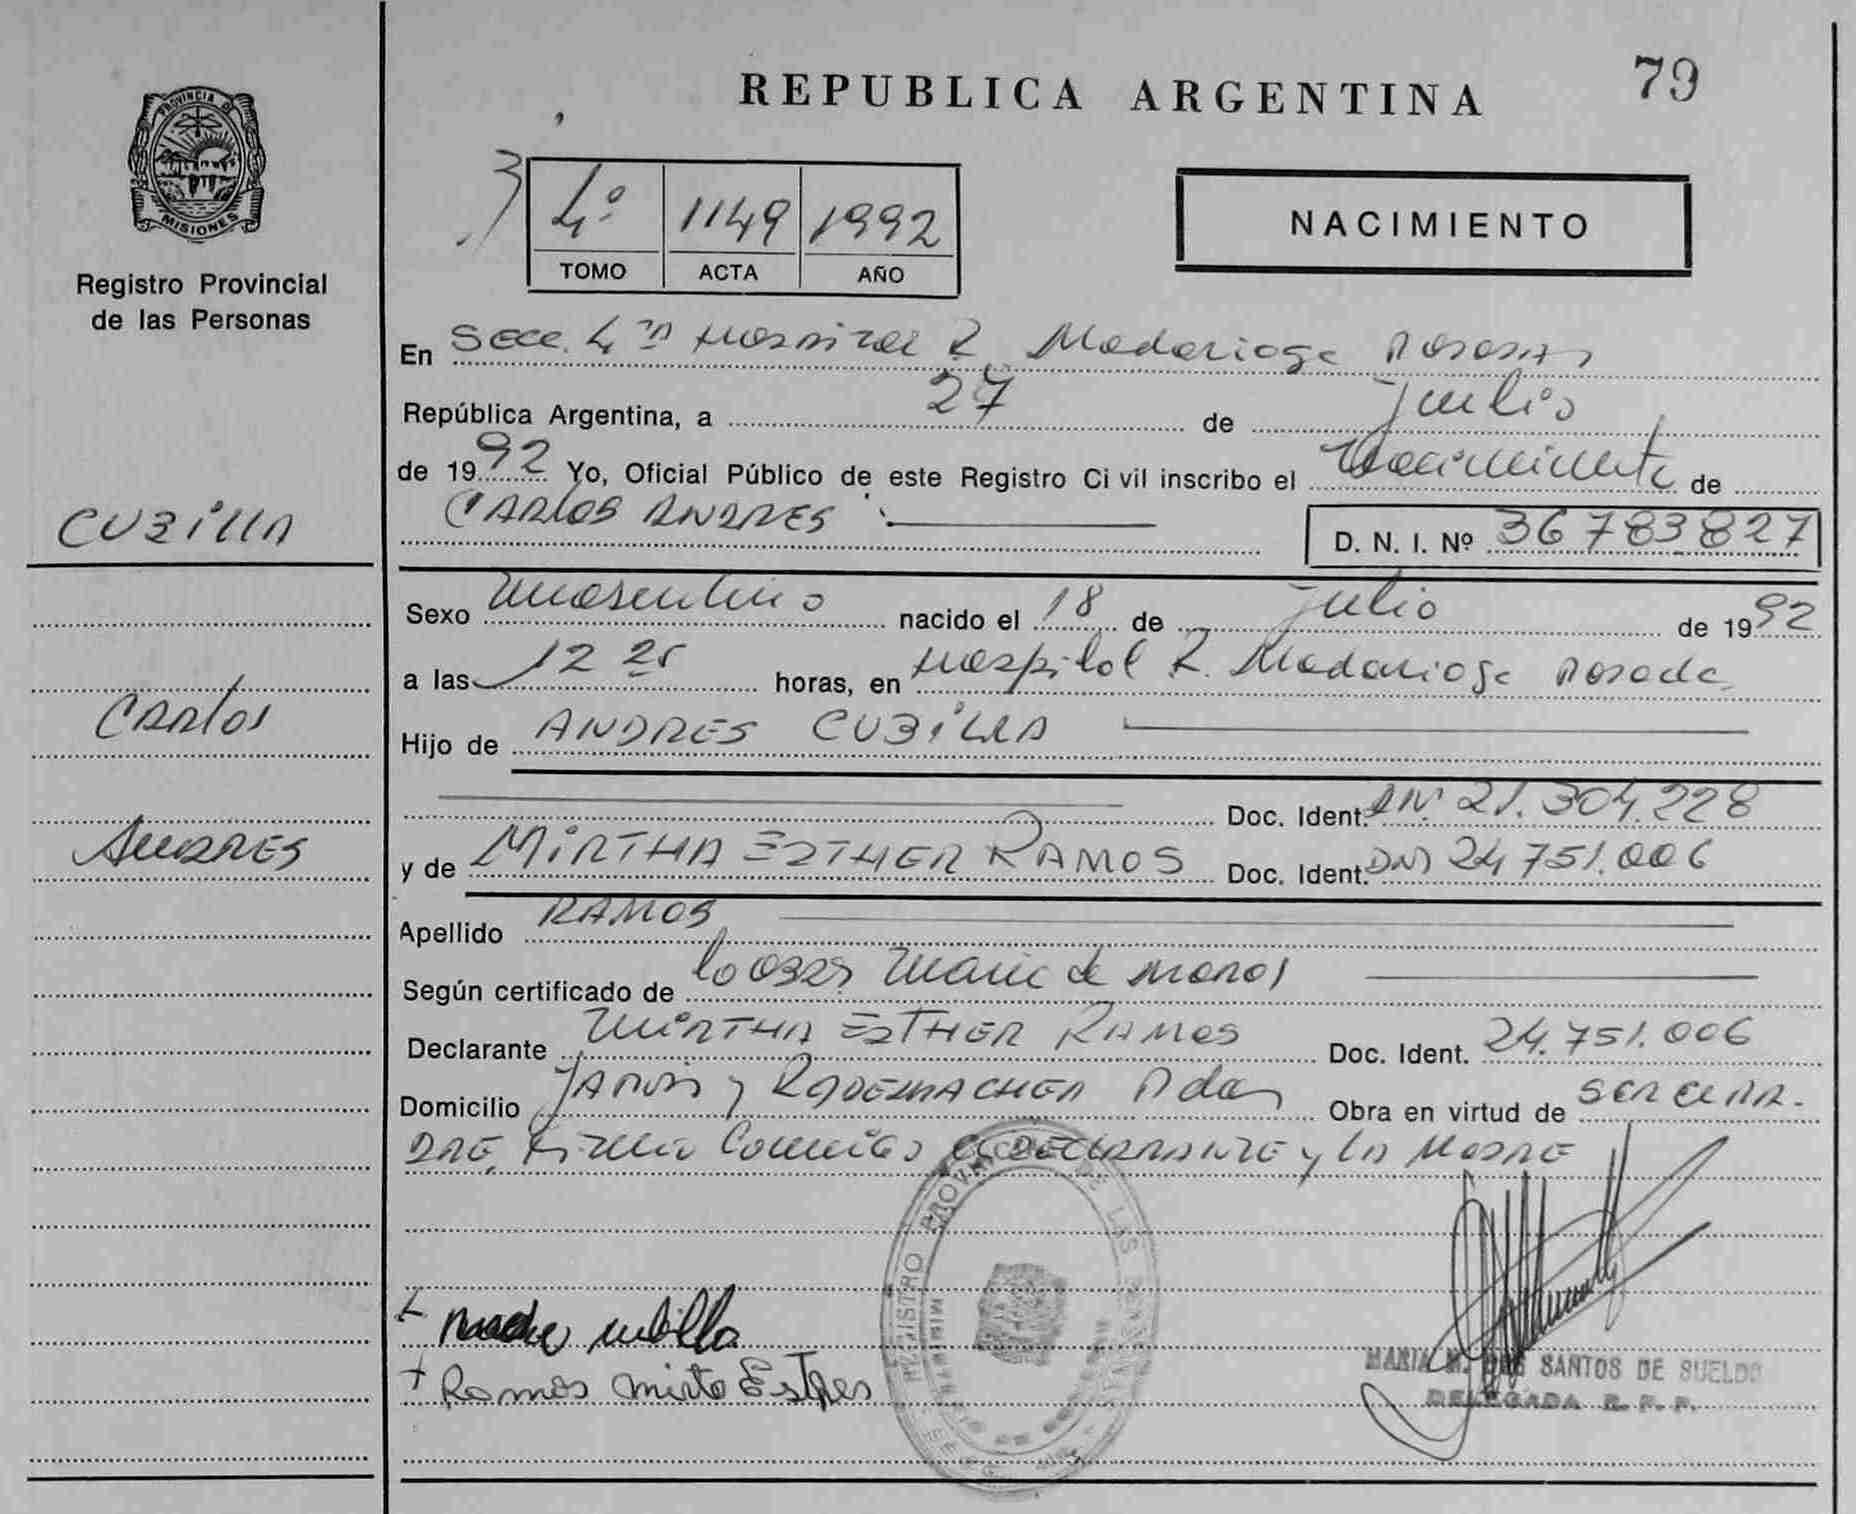 REPUBLICA ARGENTINA
79
PROVINCIA D
MISIONES
Registro Provincial
de las Personas
4º 1149 1992
TOMO ACTA AÑO
NACIMIENTO
En Secc. 4ta Hospital R. Madariaga Posadas
República Argentina, a 27 de Julio
de 1992 Yo, Oficial Público de este Registro Civil inscribo el Nacimiento de
CARLOS ANDRES
D. N. I. Nº 36783827
CUBILLA
Carlos
ANDRES
Sexo Masculino nacido el 18 de julio de 1992
a las 12 25 horas, en Hospital R. Madariaga Posadas
Hijo de ANDRES CUBILLA
Doc. Ident. DNI 21.304.228
y de MIRTHA ESTHER RAMOS Doc. Ident. DNI 24.751.006
Apellido RAMOS
Según certificado de Maria de
Declarante MIRTHA ESTHER RAMOS Doc. Ident. 24.751.006
Domicilio y RADEMACHER Pdas Obra en virtud de ser el PA-
DRE, Firma Conmigo el DECLARANTE y LA MADRE
REGISTRO PROVINCIAL DE LAS PERSONAS
cubilla
Ramos Mirta Ester
MARIA M. DOS SANTOS DE SUELDO
DELEGADA R. P. P.